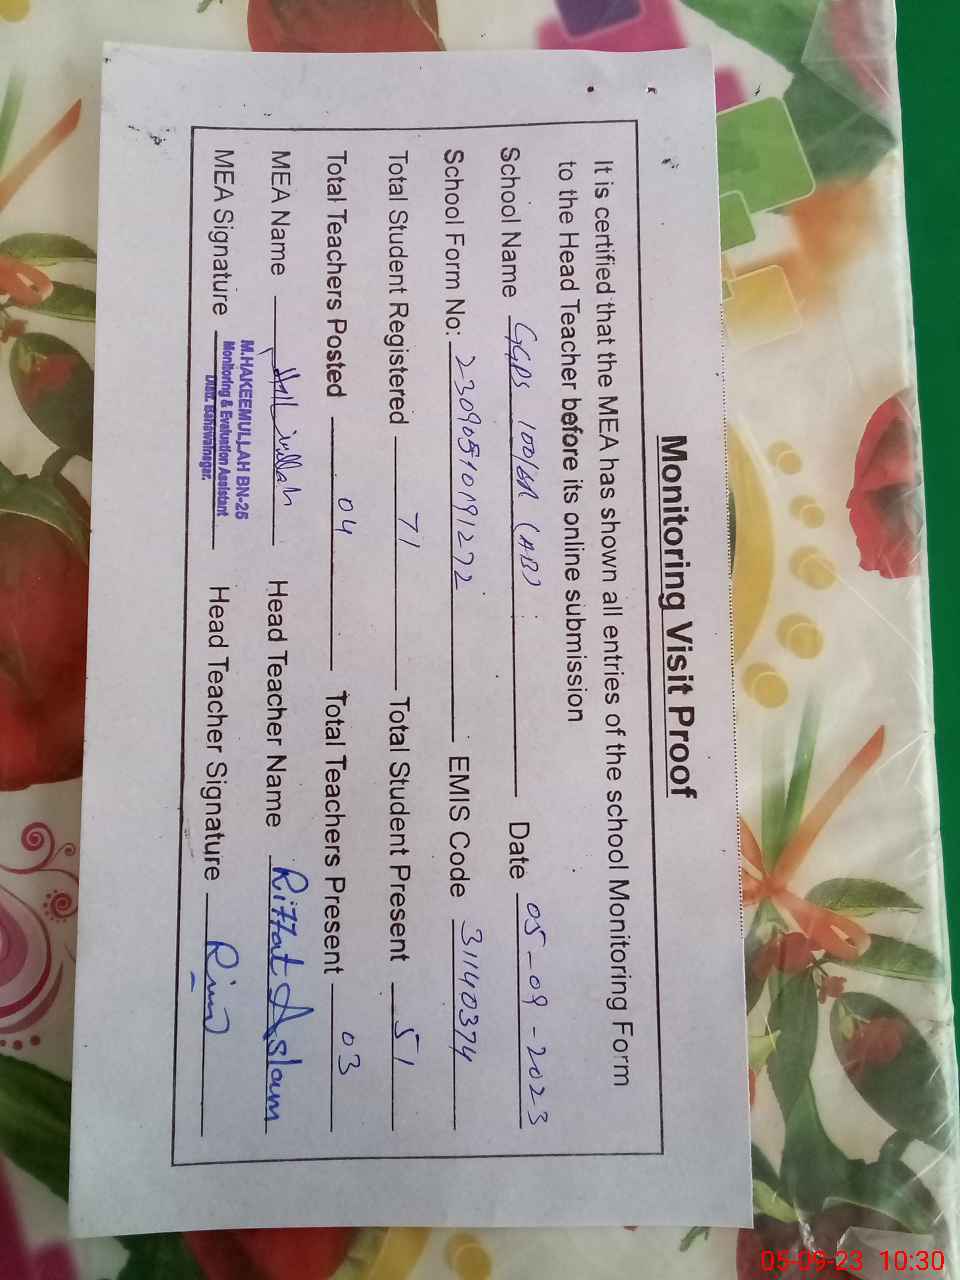 Monitoring Visit Proof
It is certified that the MEA has shown all entries of the school Monitoring Form
to the Head Teacher before its online submission
School Name GGPS 100/6R (AB) Date 05-09-2023
School Form No: 23090510191272 EMIS Code 31140374
Total Student Registered 71 Total Student Present 51
Total Teachers Posted 04 Total Teachers Present 03
MEA Name Head Teacher Name Riffat Aslam
MEA Signature Head Teacher Signature
M.HAKEEMULLAH BN-26
Monitoring & Evaluation Assistant
Distt. Bahawalnagar.
05-09-23 10:30